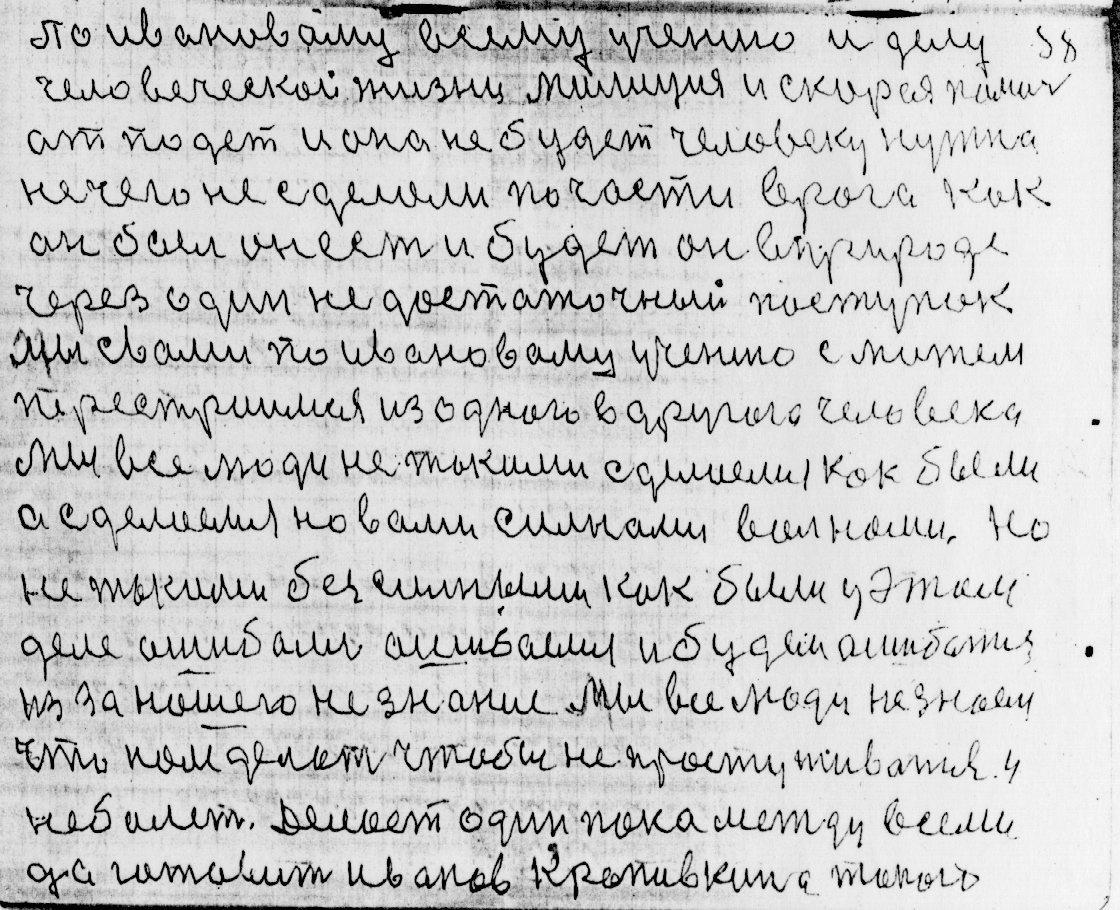 по ивановаму всему учению и делу 58
человеческой жизни милиция и скорея помоч
атподет и она не будет человеку нужна
нечего не сделоли по части врога как
он был он ест и будет он вприроде
через один недостаточный поступок
Мы свами по ивановаму учению сможем
перестроимся из одного в другого человека
Мы все люди не такими сделаемся как были
а сделаемся новами силнами волноми. Но
не такими безсилными как были у этом
деле ошибалис ошибаемся и будем ошибатся
из за нашего незнание Мы все люди незнаем
что нам делат чтобы не простуживатся и
неболет. Делает один пока между всеми
да готовит иванов Кропивкина такого